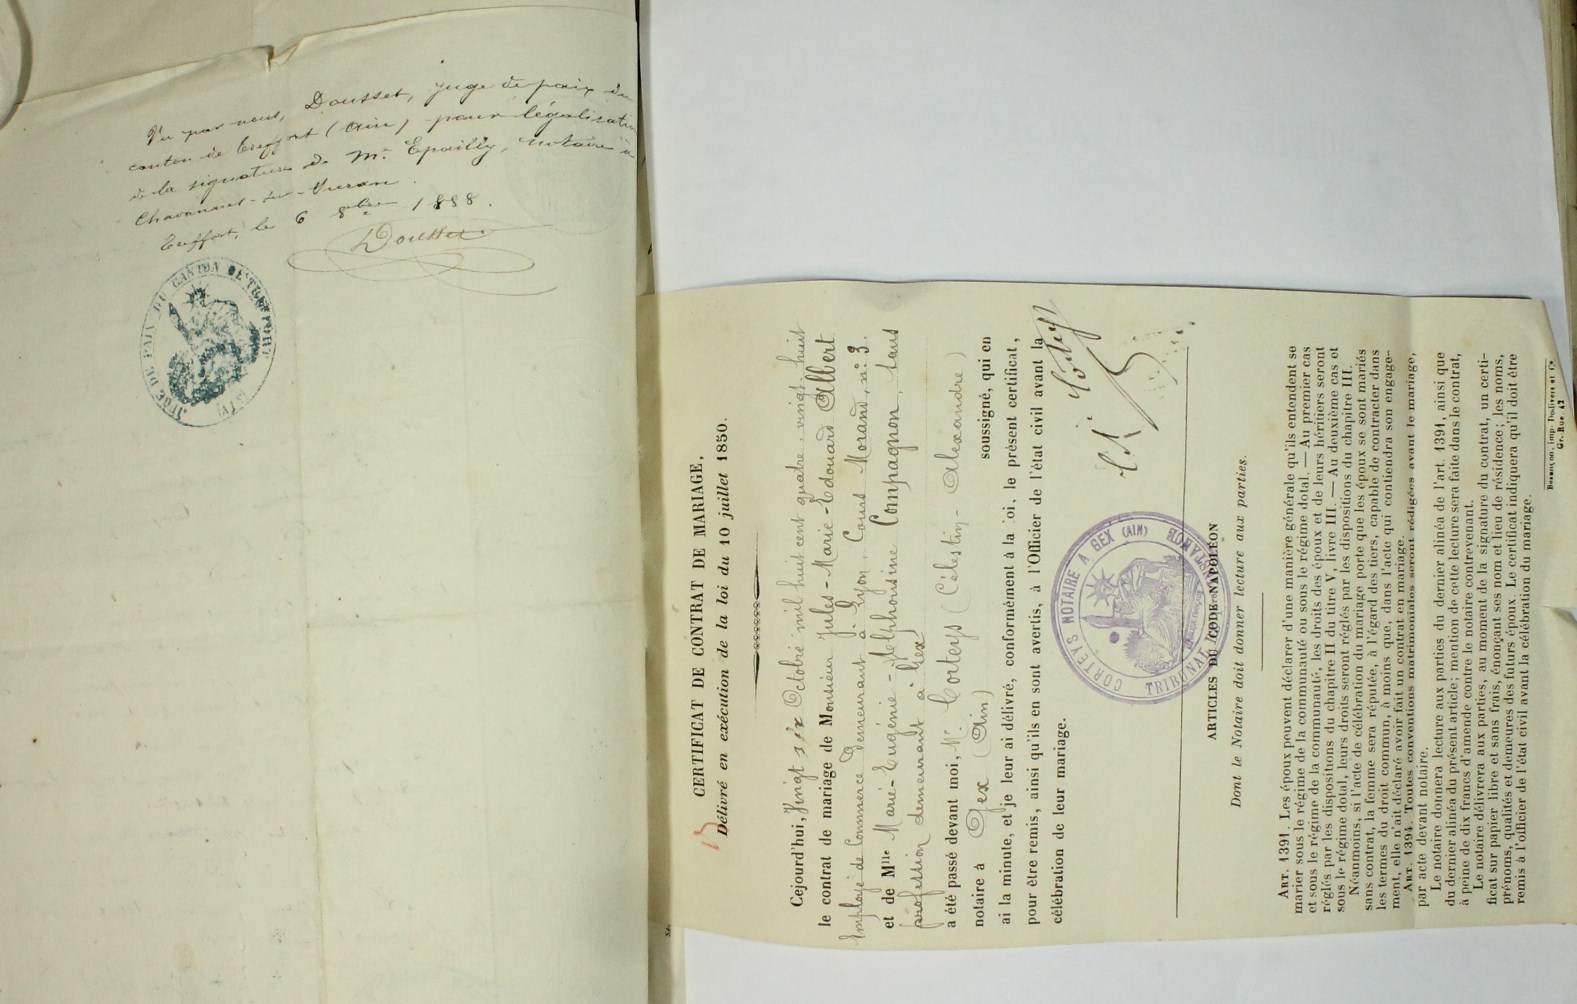 Vu par nous, Dousset, juge de paix du
canton de Treffort (Ain) pour légalisation
de la signature de Mr. Epailly, notaire à
Chavannes-sur-Suran.
Treffort, le 6 8bre 1888.
Dousset
JUGE DE PAIX DU CANTON DE TREFFORT
(AIN)
CERTIFICAT DE CONTRAT DE MARIAGE,
Délivré en exécution de la loi du 10 juillet 1850.
Cejourd'hui, Vingt six Octobre mil huit cent quatre-vingt-huit
le contrat de mariage de Monsieur Jules-Marie-Edouard Albert
Employé de Commerce demeurant à Lyon, Cours Morand, n° 3.
et de Mlle Marie-Eugénie-Alphonsine Compagnon, sans
profession demeurant à Gex
a été passé devant moi, Me. Corteys (Célestin-Alexandre)
notaire à Gex (Ain) soussigné, qui en
ai la minute, et je leur ai délivré, conformément à la loi, le présent certificat,
pour être remis, ainsi qu'ils en sont avertis, à l'Officier de l'état civil avant la
célébration de leur mariage.
Corteys
CORTEYS NOTAIRE A GEX (AIN)
TRIBUNAL
ARTICLES DU CODE NAPOLÉON
Dont le Notaire doit donner lecture aux parties.
ART. 1391. Les époux peuvent déclarer d'une manière générale qu'ils entendent se
marier sous le régime de la communauté ou sous le régime dotal. — Au premier cas
et sous le régime de la communauté, les droits des époux et de leurs héritiers seront
réglés par les dispositions du chapitre II du titre V, livre III. — Au deuxième cas et
sous le régime dotal, leurs droits seront réglés par les dispositions du chapitre III.
Néanmoins, si l'acte de célébration du mariage porte que les époux se sont mariés
sans contrat, la femme sera réputée, à l'égard des tiers, capable de contracter dans
les termes du droit commun, à moins que, dans l'acte qui contiendra son engage-
ment, elle n'ait déclaré avoir fait un contrat en mariage.
ART. 1394. Toutes conventions matrimoniales seront rédigées avant le mariage,
par acte devant notaire.
Le notaire donnera lecture aux parties du dernier alinéa de l'art. 1391, ainsi que
du dernier alinéa du présent article; mention de cette lecture sera faite dans le contrat,
à peine de dix francs d'amende contre le notaire contrevenant.
Le notaire délivrera aux parties, au moment de la signature du contrat, un certi-
ficat sur papier libre et sans frais, énonçant ses nom et lieu de résidence; les noms,
prénoms, qualités et demeures des futurs époux. Le certificat indiquera qu'il doit être
remis à l'officier de l'état civil avant la célébration du mariage.
Besançon, imp. Dodivers et Ce
Gr. Rue, 42